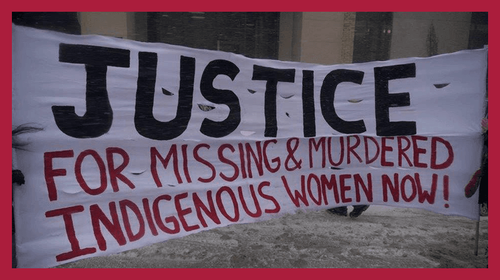 JUSTICE
FOR MISSING & MURDERED
INDIGENOUS WOMEN NOW!